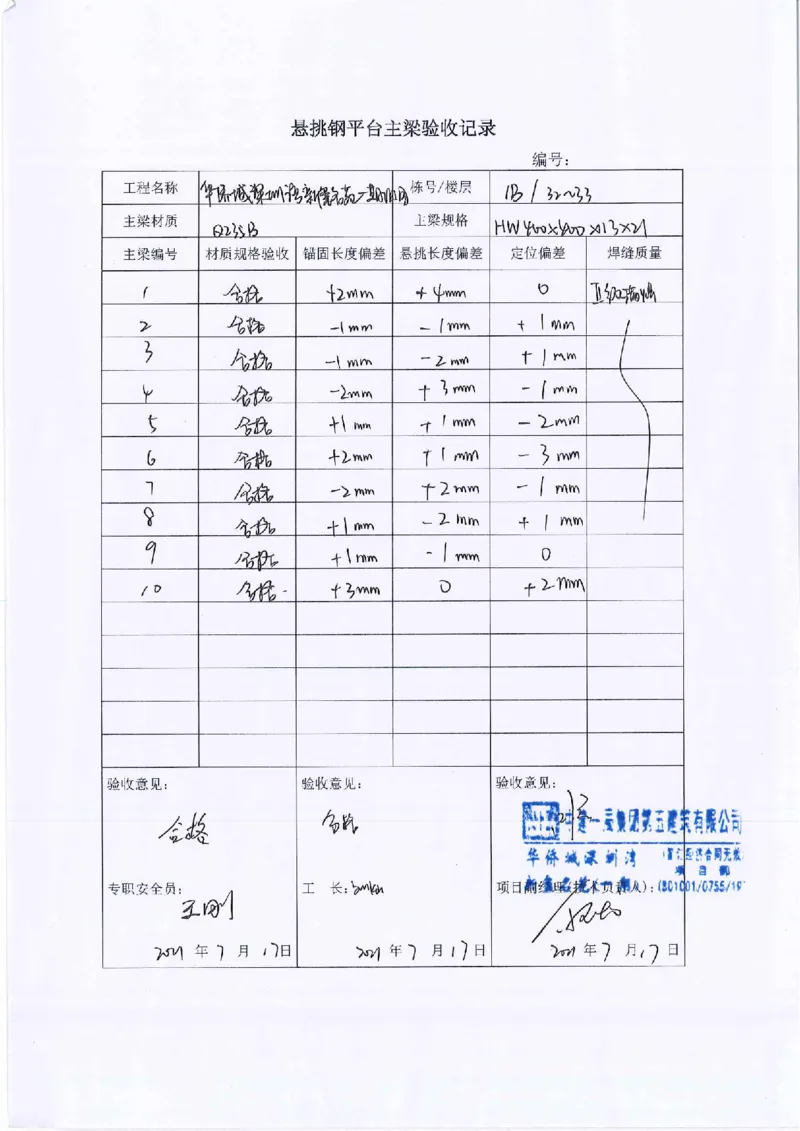 悬挑钢平台主梁验收记录
编号：
工程名称 华侨城深圳湾新 栋号/楼层 1B / 32~33
主梁材质 Q235B 主梁规格 HW 400×400×13×21
主梁编号 材质规格验收 锚固长度偏差 悬挑长度偏差 定位偏差 焊缝质量
1 合格 +2mm +4mm 0
2 合格 -1mm -1mm +1mm
3 合格 -1mm -2mm +1mm
4 合格 -2mm +3mm -1mm
5 合格 +1mm +1mm -2mm
6 合格 +2mm +1mm -3mm
7 合格 -2mm +2mm -1mm
8 合格 +1mm -2mm +1mm
9 合格 +1mm -1mm 0
10 合格 +3mm 0 +2mm
验收意见： 验收意见： 验收意见：
合格 合格
中建一局集团第五建筑有限公司
华侨城深圳湾
项目部
(801001/0755/19
专职安全员： 工 长： 项目副经理（技术负责人）：
王刚
2021 年 7 月 17 日 2021 年 7 月 17 日 2021 年 7 月 17 日